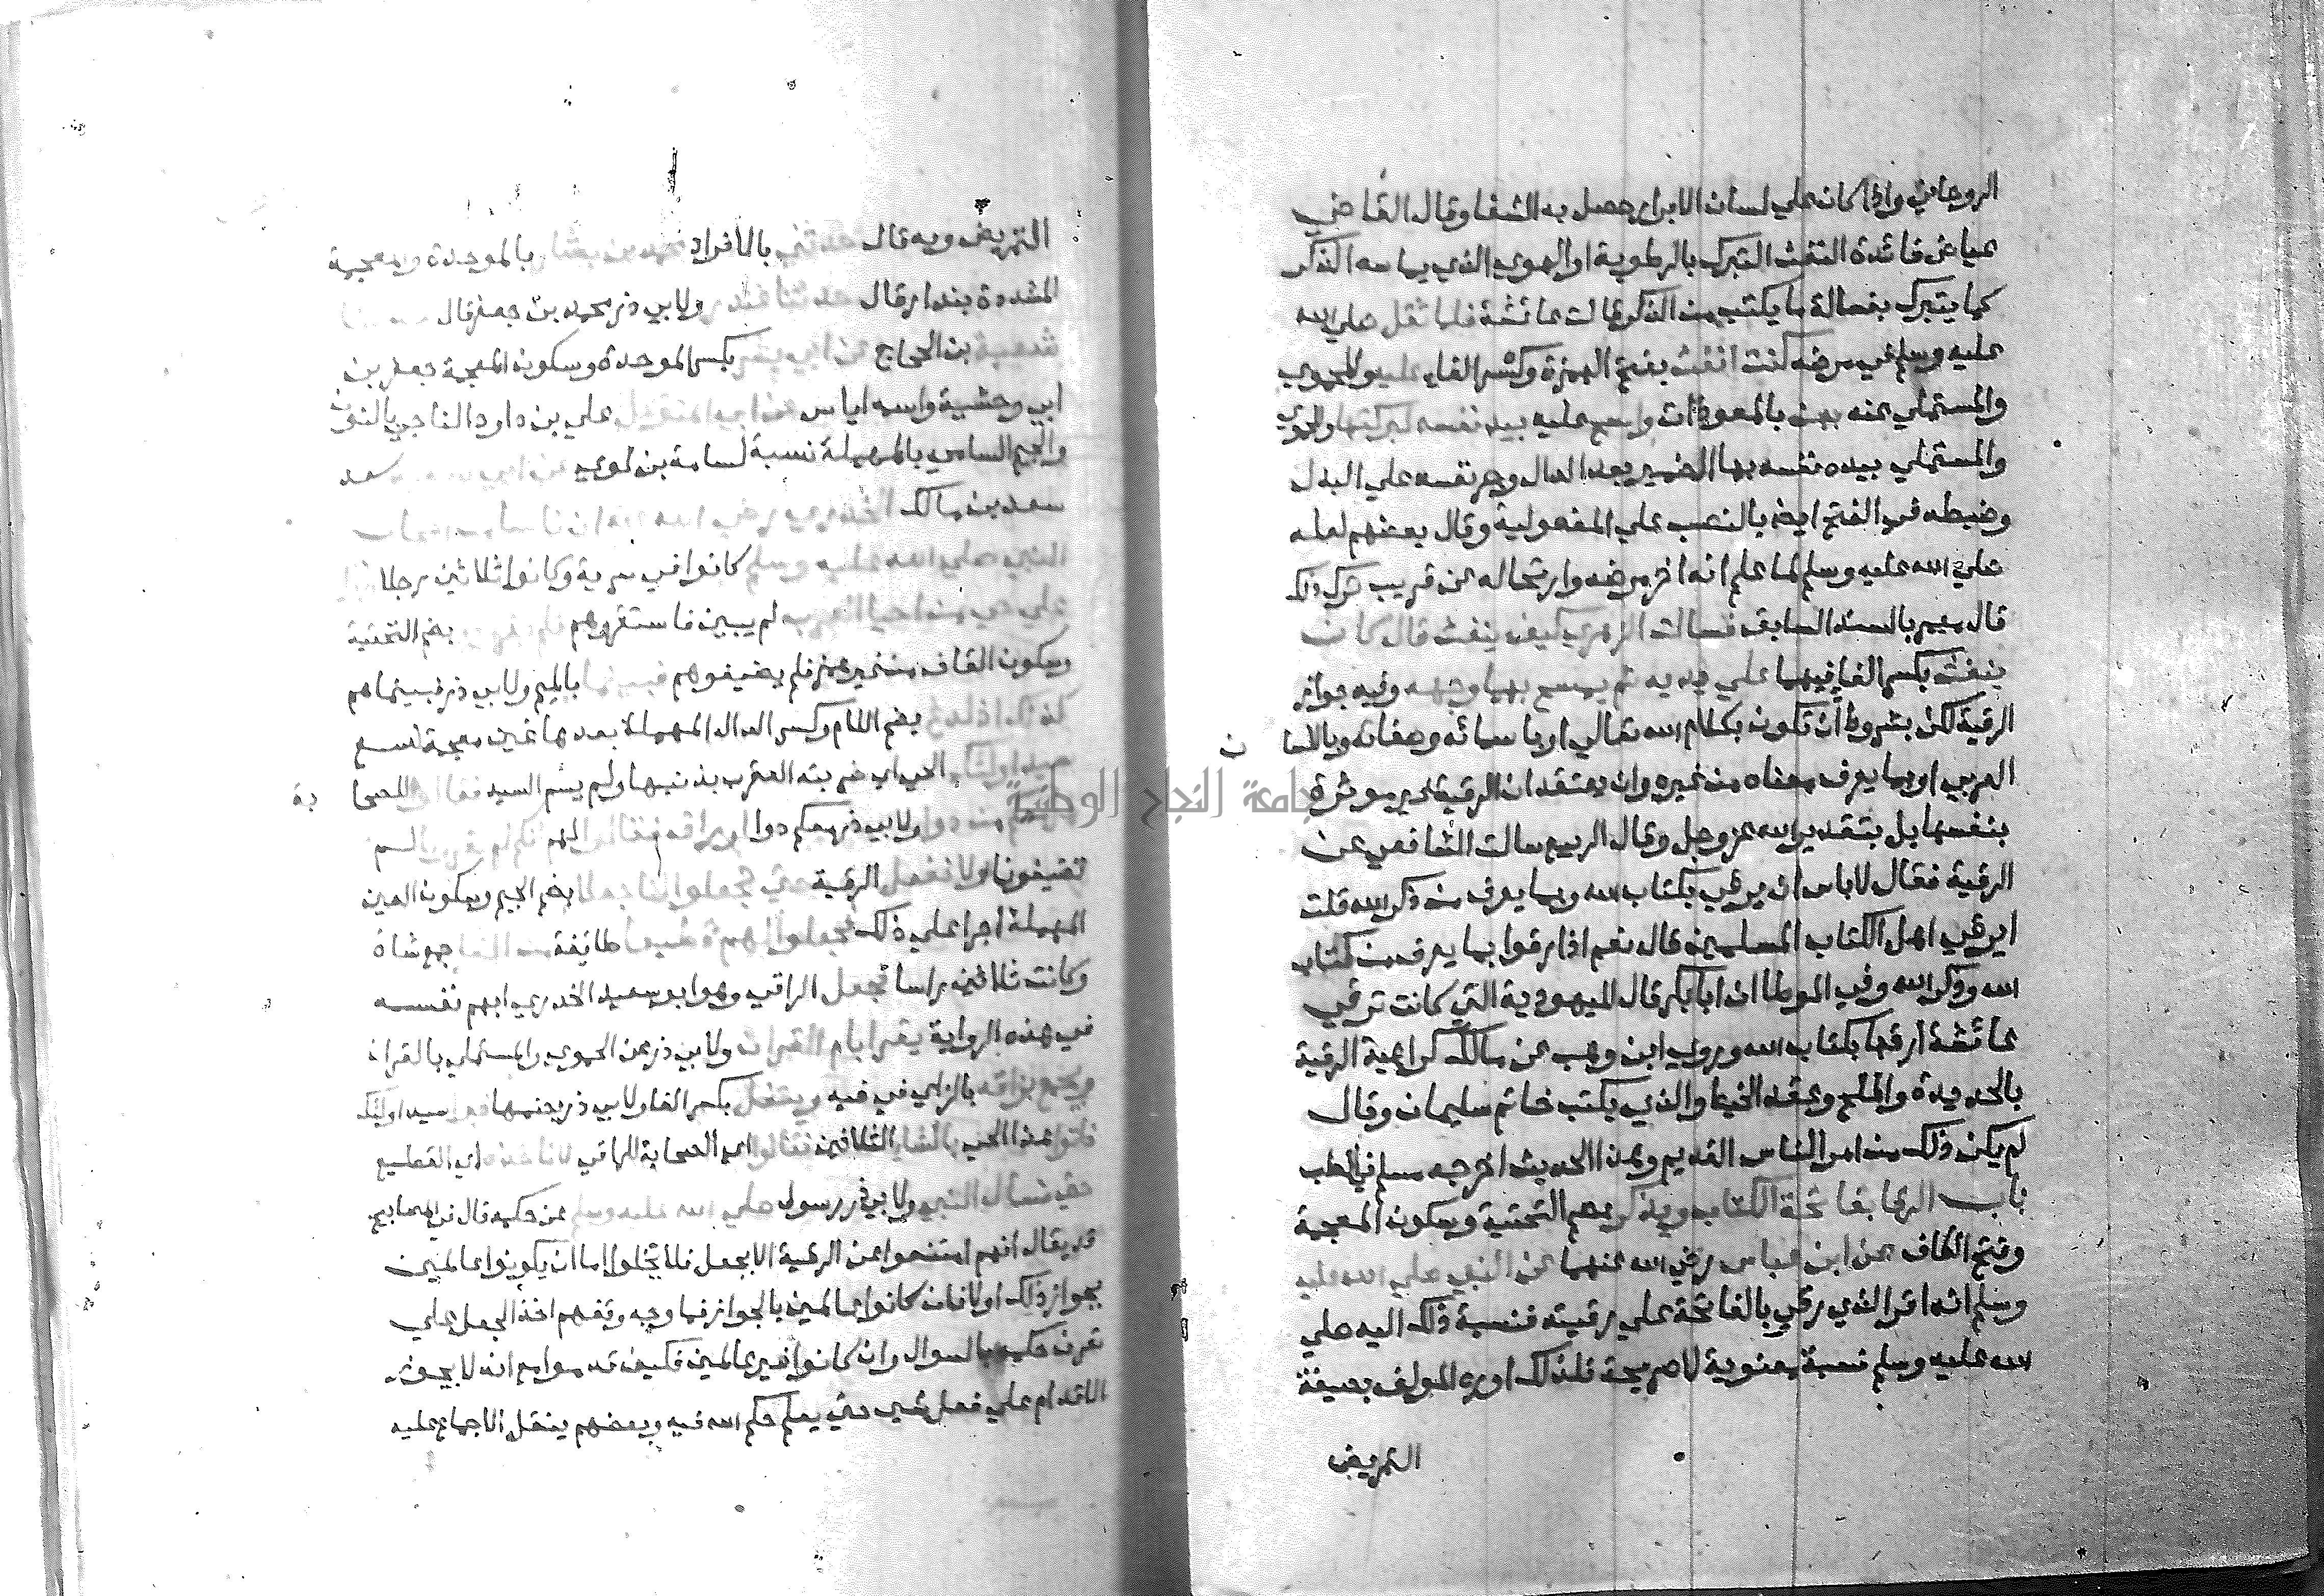 الروحاني واذا كان علي لسان الابرار حصل به الشفا وقال القاضي
عياض فائدة النفث التبرك بالرطوبة او الهوي الذي يماسه الذكر
كما يتبرك بغسالة ما يكتب من الذكر قالت عائشة فلما ثقل صلي الله
عليه وسلم في مرضه كنت انفث بفتح الهمزة وكسر الفا عليه وللحموي
والمستملي عنه بهن بالمعوذات وامسح عليه بيد نفسه لبركتها وللحموي
والمستملي بيده نفسه بها الضمير بعد الحال وجر نفسه علي البدل
وضبطه في الفتح ايضا بالنصب علي المفعولية وقال بعضهم لعله
صلي الله عليه وسلم لما علم انه اخر مرضه وارتحاله عن قريب ترك ذلك
قال معمر بالسند السابق فسالت الزهري كيف ينفث قال كان
ينفث بكسر الفا فيهما علي يديه ثم يمسح بهما وجهه وفيه جواز
الرقية لكن بشروط ان تكون بكلام الله تعالي او باسمائه وصفاته وباللسان
العربي او بما يعرف معناه من غيره وان يعتقد ان الرقية غير موثرة
بنفسها بل بتقدير الله عز وجل وقال الربيع سالت الشافعي عن
الرقية فقال لا باس ان يرقي بكتاب الله وبما يعرف من ذكر الله قلت
ايرقي اهل الكتاب المسلمين قال نعم اذا رقوا بما يعرف من كتاب
الله وذكر الله وفي الموطا ان ابا بكر قال لليهودية التي كانت ترقي
عائشة ارقها بكتاب الله وروي ابن وهب عن مالك كراهية الرقية
بالحديدة والملح وعقد الخيط والذي يكتب خاتم سليمان وقال
لم يكن ذلك من امر الناس القديم وهذا الحديث اخرجه مسلم في الطب
باب الرقا بفاتحة الكتاب ويذكر بضم التحتية وسكون المعجمة
وفتح الكاف عن ابن عباس رضي الله عنهما عن النبي صلي الله عليه
وسلم انه اقر الذي رقي بالفاتحة علي رقيته فنسبة ذلك اليه صلي
الله عليه وسلم نسبة معنوية لا صريحة فلذلك اورده المولف بصيغة
التمريض
التمريض وبه قال بالافراد بالموحدة والمعجمة
المشددة بندار قال ولابي ذر محمد بن جعفر قال
شعبة بن الحجاج بكسر الموحدة وسكون المعجمة جعفر بن
ابي وحشية واسمه اياس علي بن داود الناجي بالنون
والجيم السامي بالمهملة نسبة لسامة بن لوي سعد
سعد بن مالك
النبي صلي الله عليه وسلم كانوا في سرية وكانوا ثلاثين رجلا
علي حي من احيا العرب لم يبين فاستقروهم بفتح التحتية
وسكون القاف من غير همز فلم يضيفوهم بالميم ولابي ذر فبينما هم
كذلك اذ لدغ بضم اللام وكسر الدال المهملة بعدها غين معجمة لسع
سيد اولئك الحي اي ضربته العقرب بذنبها ولم يسم السيد فقالوا للصحابة
ولابي ذر معكم دوا
تضيفونا ولا نفعل الرقية حتي تجعلوا لنا جعلا بضم الجيم وسكون العين
المهملة اجرا علي ذلك فجعلوا لهم طائفة جمع شاة
وكانت ثلاثين راسا فجعل الراقي وهو ابو سعيد الخدري ابهم نفسه
في هذه الرواية يقرا بام القران ولابي ذر عن الحموي والمستملي بالقران
ويجمع بزاقه بالزاي في فيه ويتفل بكسر الفا ولابي ذر بضمها سيد اولئك
فاتوا هذا الحي بالشا الثلاثين فقالوا اي الصحابة للراقي لا ناخذه اي القطيع
حتي نسال النبي ولابي ذر رسول صلي الله عليه وسلم عن حكمه قال في المصابيح
قد يقال انهم امتنعوا عن الرقية الا بجعل فلا تخلوا اما ان يكونوا عالمين
بجواز ذلك او لا فان كانوا عالمين بالجواز فما وجه وقفهم اخذ الجعل علي
تعرف حكمه بالسوال وان كانوا غير عالمين فكيف قدموا مع انه لا يجوز
الاقدام علي فعل شي حتي يعلم حكم الله فيه وبعضهم ينقل الاجماع عليه
جامعة النجاح الوطنية